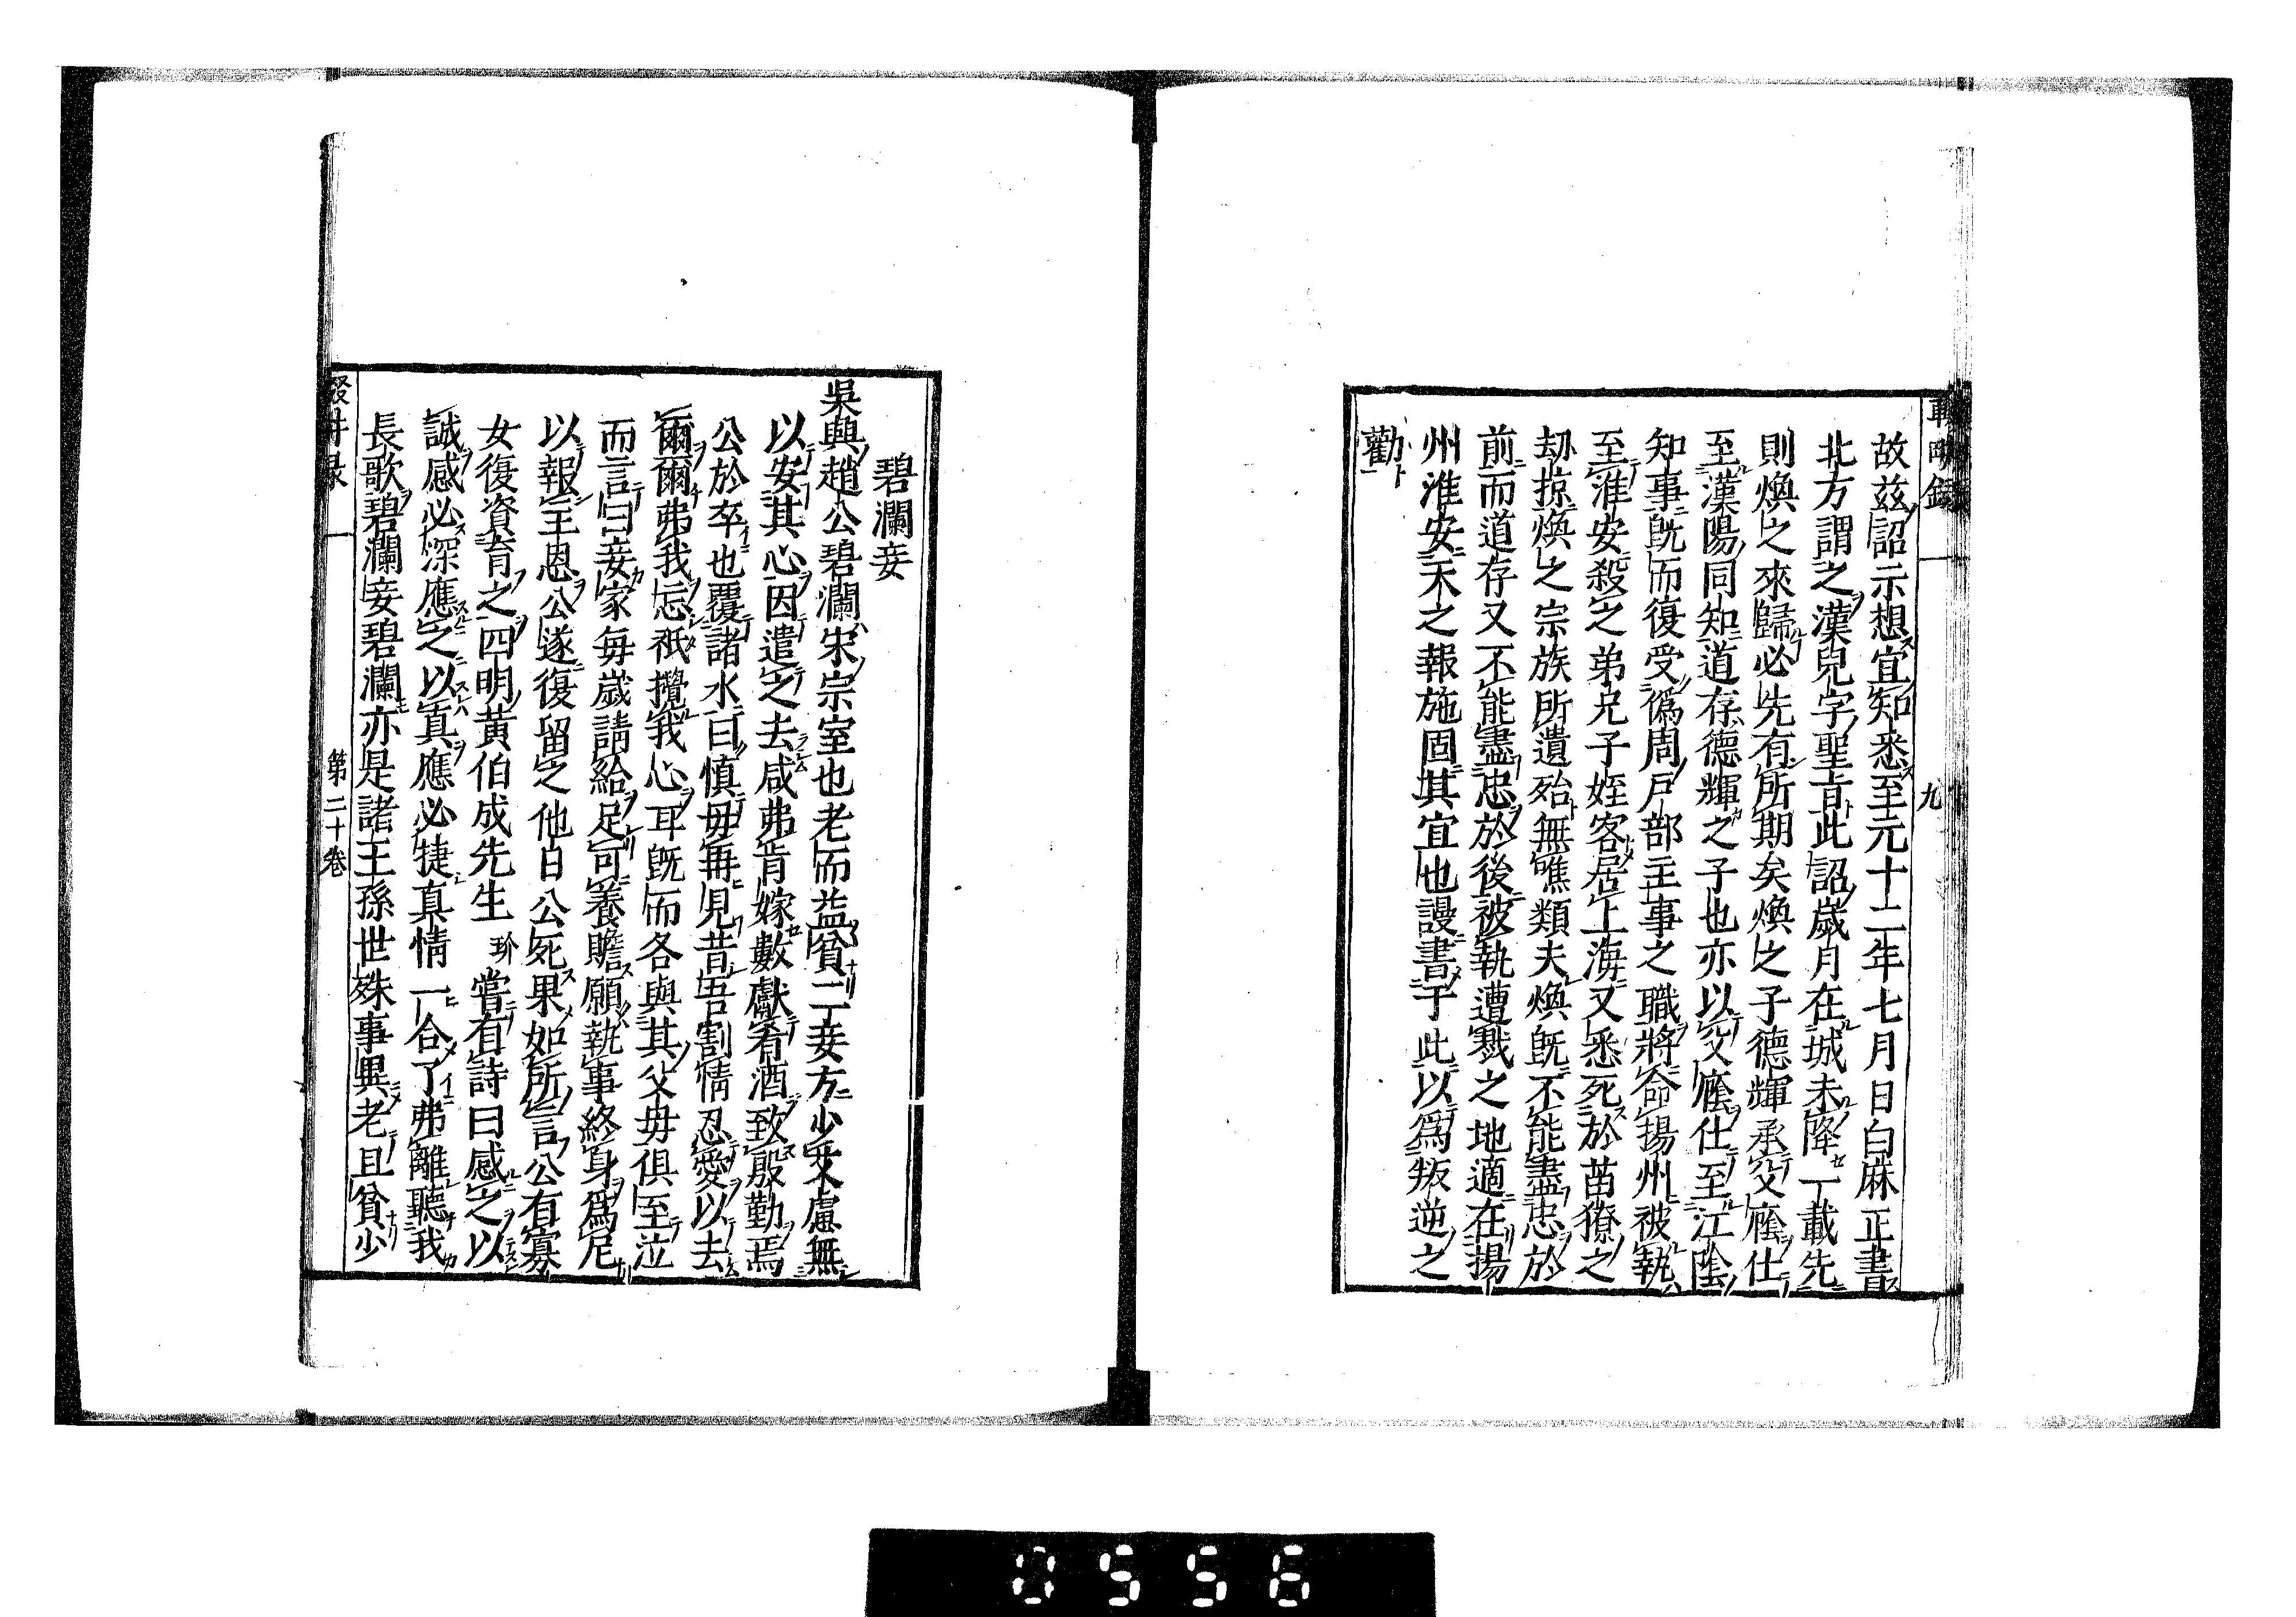 故茲詔示想宜知悉至元十二年七月日白麻正書
北方謂之漢兒字聖旨此詔歲月在城未降一載先
則煥之來歸必先有所期矣煥之子德輝承父廕仕
至漢陽同知道存德輝之子也亦以父廕仕至江陰
知事旣而復受僞周戶部主事之職將命揚州被執
至淮安殺之弟兄子姪客居上海又悉死於苗獠之
刼掠煥之宗族所遺殆無噍類夫煥旣不能盡忠於
前而道存又不能盡忠於後被執遭戮之地適在揚
州淮安天之報施固其宜也謾書于此以爲叛逆之
勸
九
碧瀾妾
吳興趙公碧瀾宋宗室也老而益貧二妾方少艾慮無
以安其心因遣之去咸弗肯嫁數獻肴酒致殷勤焉
公於卒也覆諸水曰慎毋再見昔吾割情忍愛以去
爾爾弗我忘祇攪我心耳旣而各與其父毋俱至泣
而言曰妾家每歲請給足可養贍願執事終身爲尼
以報主恩公遂復留之他日公死果如所言公有寡
女復資育之四明黃伯成先生玠嘗有詩曰感之以
誠感必深應之以真應必捷真情一合了弗離聽我
長歌碧瀾妾碧瀾亦是諸王孫世殊事異老且貧少
輟耕录
第二十卷